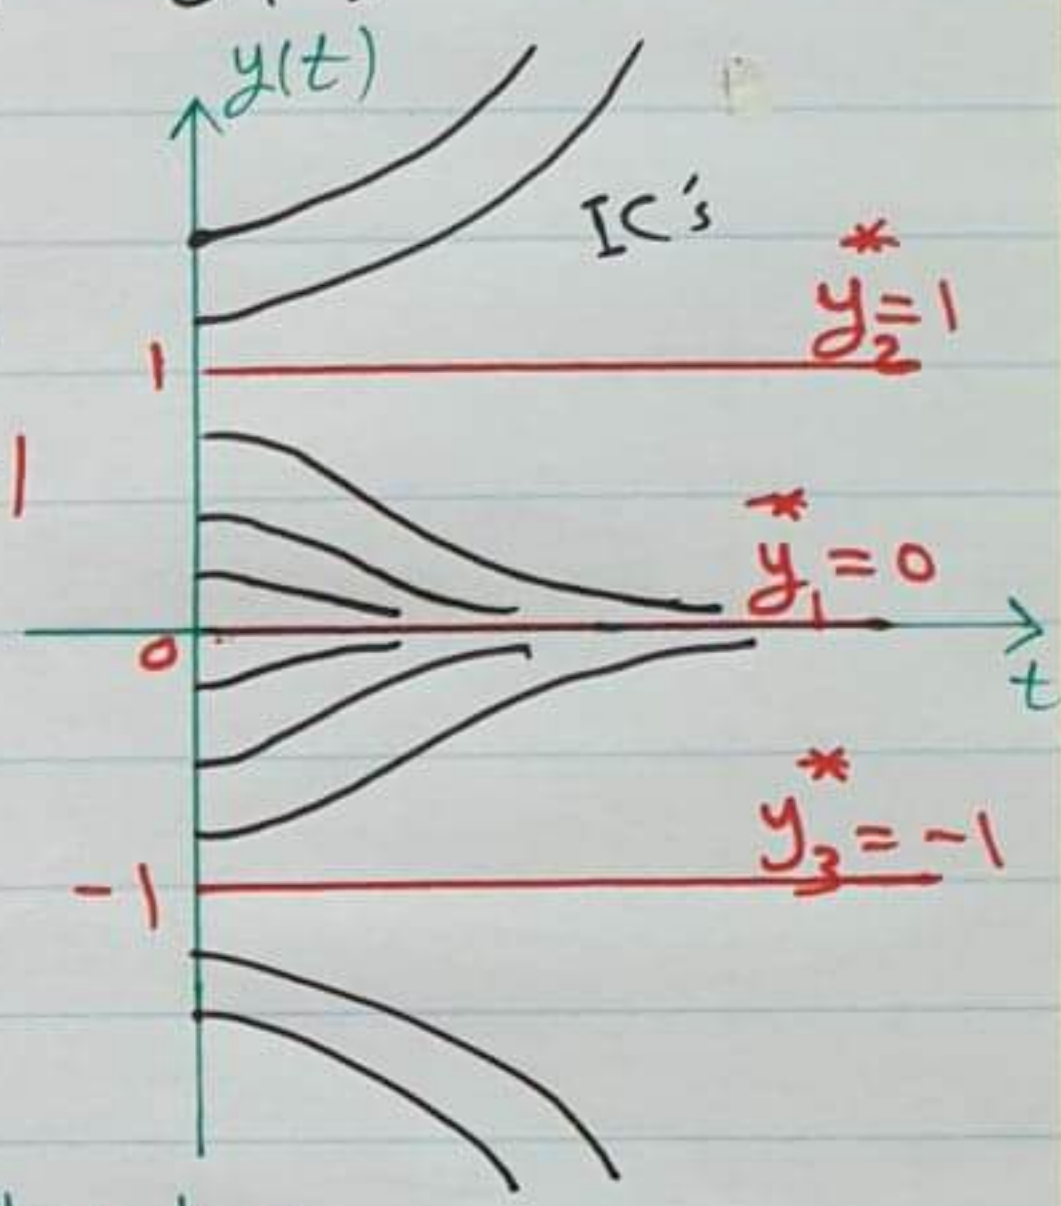 y(t)
IC's
y₂* = 1
1
y₁* = 0
0
t
y₃* = -1
-1